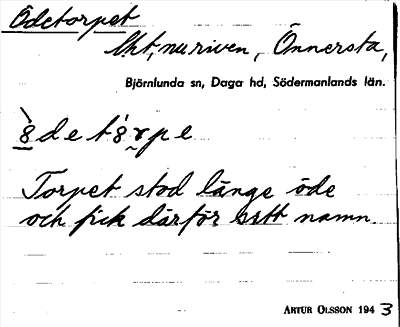 Ödetorpet
Lht, nu riven, Önnersta,
Björnlunda sn, Daga hd, Södermanlands län.
Torpet stod länge öde
och fick därför sitt namn.
ARTUR OLSSON 1943